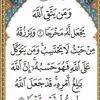 وَمَن يَتَّقِ ٱللَّهَ
يَجْعَل لَّهُۥ مَخْرَجًا ۝ وَيَرْزُقْهُ
مِنْ حَيْثُ لَا يَحْتَسِبُ وَمَن يَتَوَكَّلْ
عَلَى ٱللَّهِ فَهُوَ حَسْبُهُۥٓ إِنَّ ٱللَّهَ
بَٰلِغُ أَمْرِهِۦ قَدْ جَعَلَ ٱللَّهُ